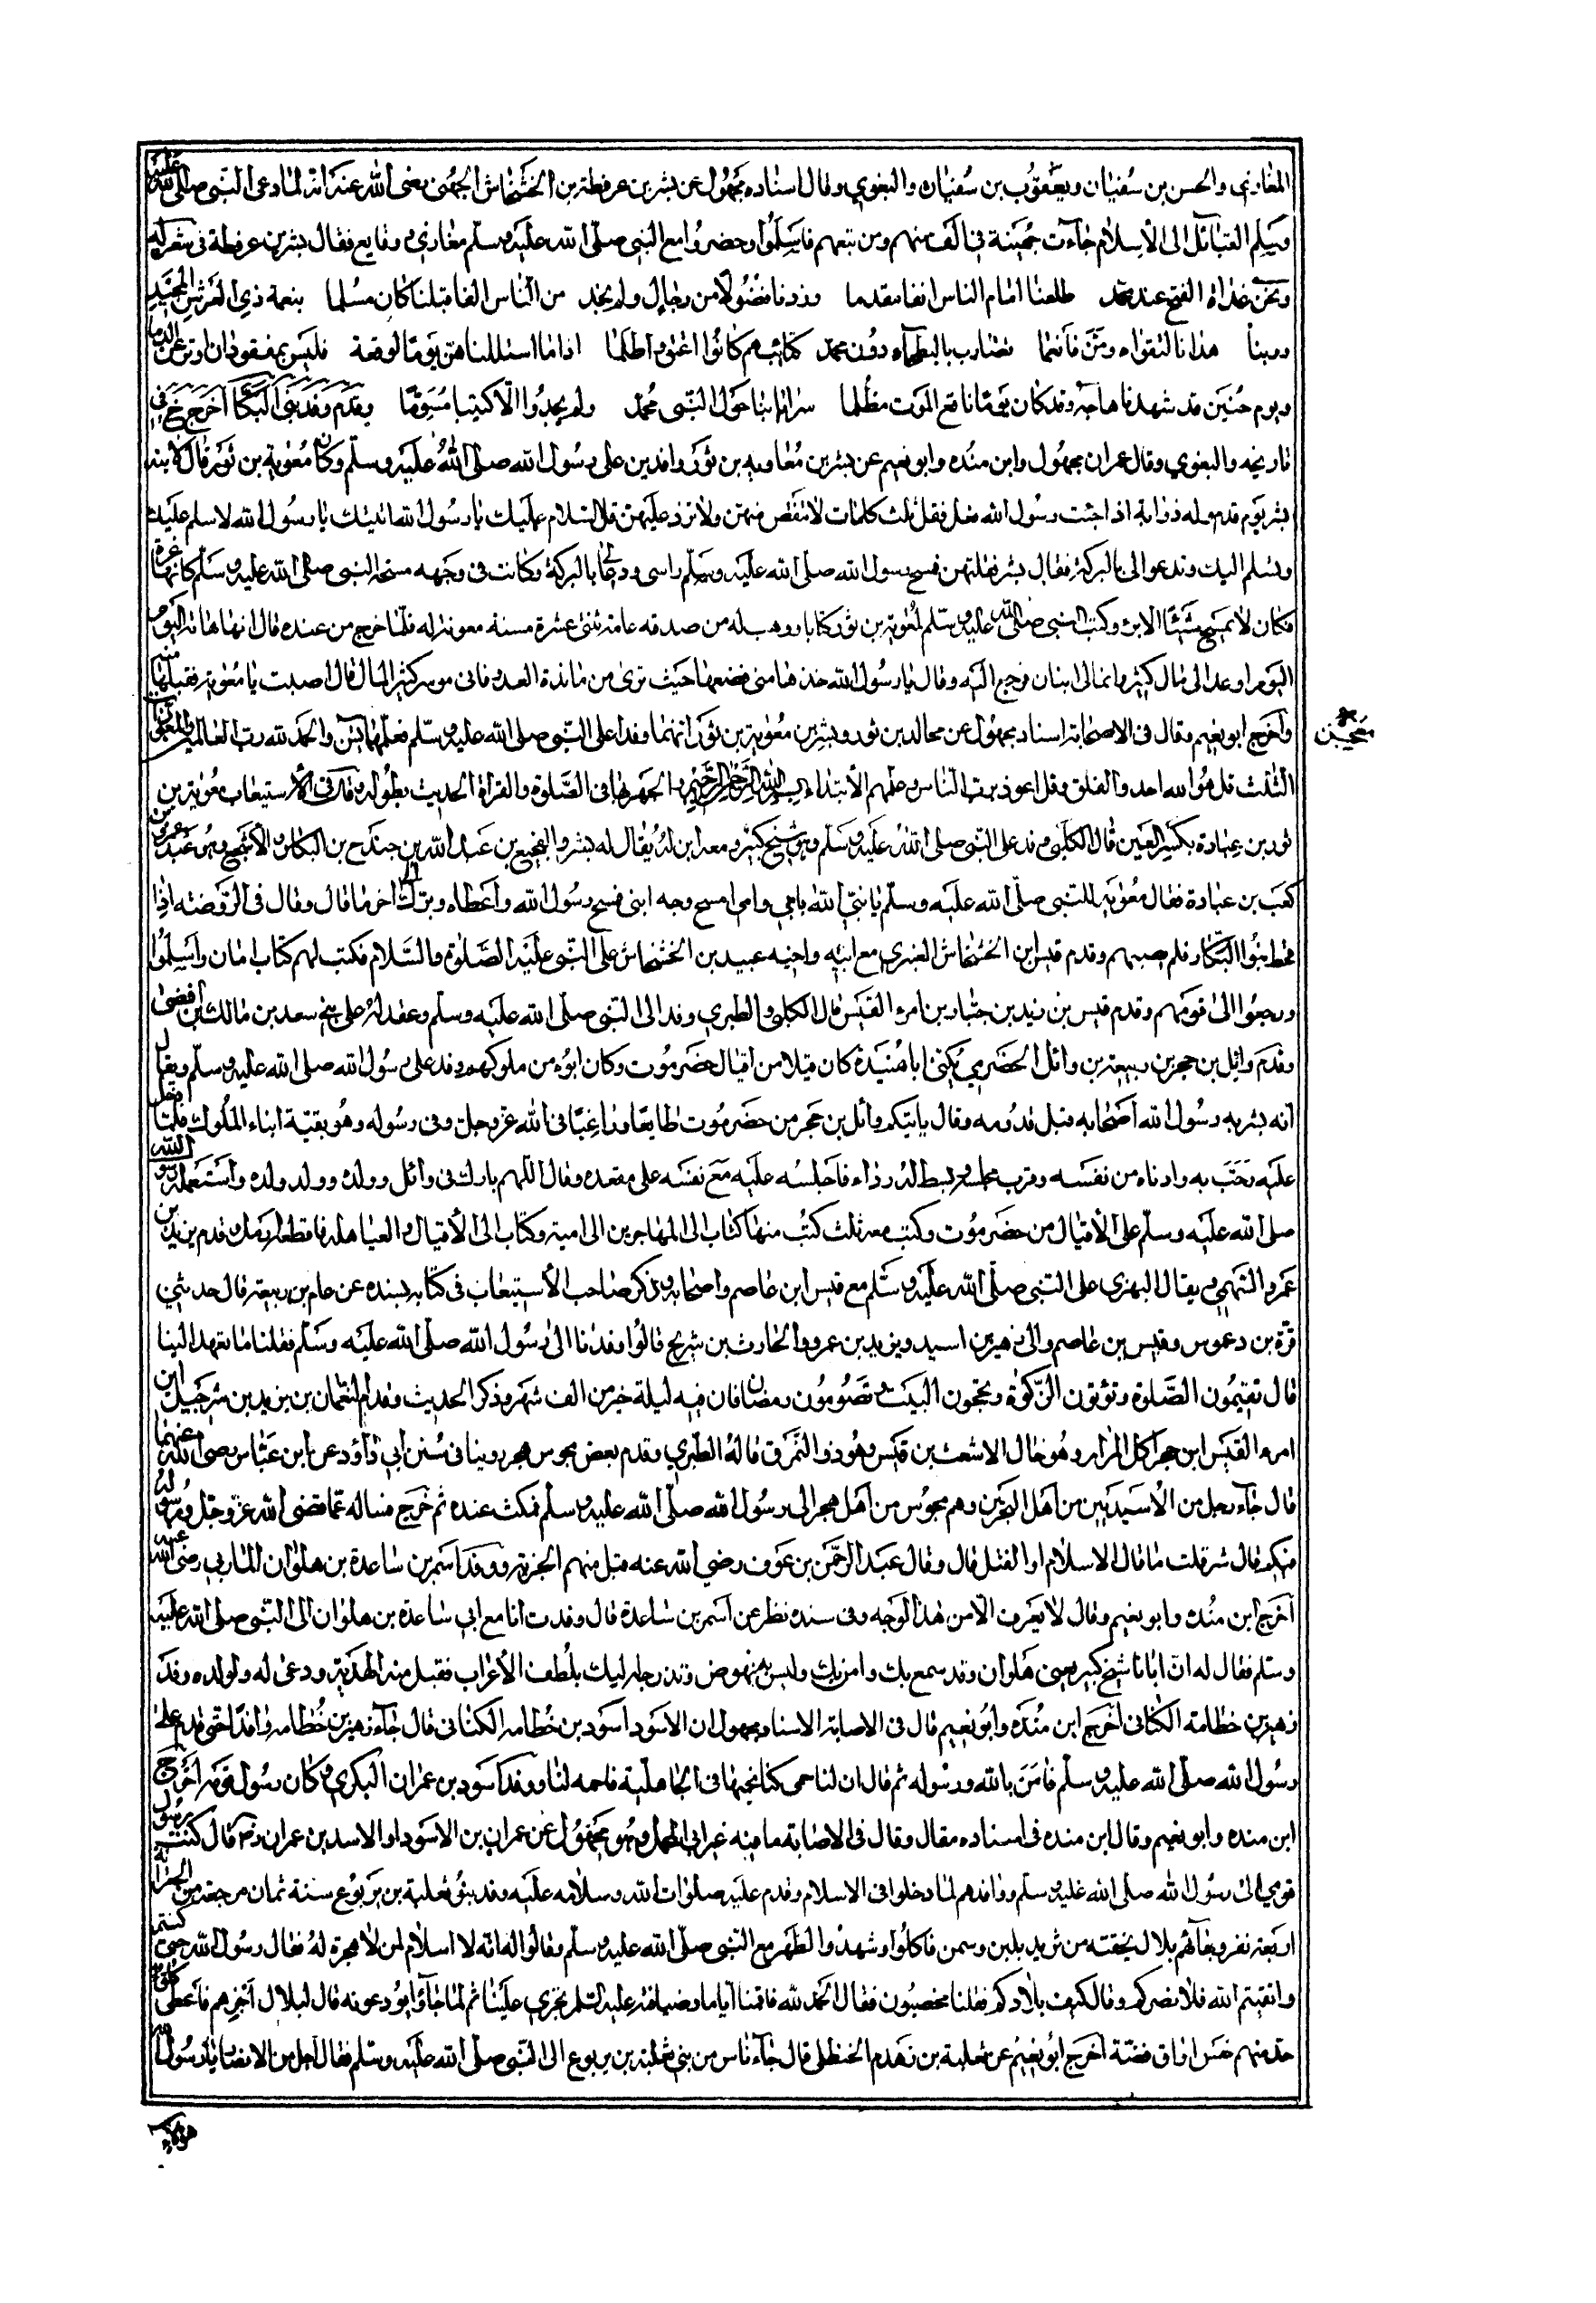 المغازي والحسن بن سفيان ويعقوب بن سفيان والبغوي وقال اسناده مجهول عن بشر بن عرفطة بن الخشخاش الجهني رضى الله عنه انه لما دعى النبي صلى الله عليه
وسلم القبائل الى الاسلام جاءت جهينة في الف منهم ومن تبعهم فاسلموا وحضروا مع النبي صلى الله عليه وسلم مغازي ووقايع فقال بشر بن عرفطة في شعر له
ونحن غداة الفتح عند محمد طلعنا امام الناس الفا مقدما وزدنا فضولا من رجال ولم نجد من الناس الفا قبلنا كان مسلما بنعمة ذي العرش المجيد
وربنا هدانا لتقواه ومن فانعما نضارب بالبطحاء دون محمد كتائب هم كانوا اعق واظلما اذا ما استللناهن يوما لوقعة فليس بمغمود ان او ترعف الدما
ويوم حنين قد شهدنا هياجه وقد كان يوما ناقع الموت مظلما سراياتنا حول النبي محمد ولم يجدوا الا كميا مسوما وقدم وفد بني البكا اخرج خ في
تاريخه والبغوي وقال عمران مجهول وابن منده وابو نعيم عن بشر بن معاوية بن ثور وافدين على رسول الله صلى الله عليه وسلم وكان معوية بن ثور قال لابنه
بشر يوم قدم وله ذوابة اذا جئت رسول الله فقل ثلث كلمات لا تنقص منهن ولا تزد عليهن قل السلام عليك يا رسول الله اتيتك يا رسول الله لاسلم عليك
ونسلم اليك وتدعو الي بالبركة فقال بشر فقلتهن فمسح رسول الله صلى الله عليه وسلم راسي ودعا لي بالبركة وكانت في وجهه مسحة النبي صلى الله عليه وسلم كانها غرة
فكان لا يمسح شيئا الا برئ وكتب النبي صلى الله عليه وسلم لمعوية بن ثور كتابا ووهب له من صدقة عامة ثنتى عشرة مسنة معونة له فلما خرج من عنده قال انها هامة اليوم
اليوم او غدا لي مال كثير وانما لي ابنان فرجع اليه وقال يا رسول الله خذها مني فضعها حيث ترى من مائدة العدو فانى موسر كثير المال قال اصبت يا معوية فقبلها منه
واخرج ابو نعيم وقال في الاصابة اسناد مجهول عن مجالد بن ثور وبشر بن معوية بن ثور انهما وفدا على النبي صلى الله عليه وسلم فعلمهما يس والحمد لله رب العالمين والمعوذات
الثلث قل هو الله احد والفلق وقل اعوذ برب الناس وعلمهم الابتداء ببسم الله الرحمن الرحيم والجهر بها في الصلوة والقراة الحديث بطوله وقال في الاستيعاب معوية بن
ثور بن عبادة بكسر العين قال الكلبي وفد على النبي صلى الله عليه وسلم وهو شيخ كبير ومعه ابن له يقال له بشر والفجيع بن عبد الله بن جندح بن البكاء والاشج وهو عبد عمرو بن
كعب بن عبادة فقال معوية للنبي صلى الله عليه وسلم يا نبي الله بابي وامي امسح وجه ابني فمسح رسول الله واعطاه وبرك الى اخر ما قال وقال في الروضة اذا
قحط بنوا البكاء فلم يصبهم وقدم قيس ابن الخشخاش العنبري مع ابيه واخيه عبيد بن الخشخاش على النبي عليه الصلوة والسلام فكتب لهم كتاب امان واسلموا
ورجعوا الى قومهم وقدم قيس بن زيد بن جبار بن امرء القيس قال الكلبي والطبري وفد الى النبي صلى الله عليه وسلم وعقد له على بني سعد بن مالك بن افصى
وقدم وائل بن حجر بن ربيعة بن وائل الحضرمي يكنى ابا هنيدة كان قيلا من اقيال حضرموت وكان ابوه من ملوكهم وفد على رسول الله صلى الله عليه وسلم ويقال
انه بشر به رسول الله اصحابه قبل قدومه وقال ياتيكم وائل بن حجر من حضرموت طايعا وراغبا في الله عز وجل وفي رسوله وهو بقية ابناء الملوك فلما دخل
عليه رحب به وادناه من نفسه وقرب مجلسه وبسط له رداءه فاجلسه عليه مع نفسه على مقعده وقال اللهم بارك في وائل وولده وولد ولده واستعمله رسول الله
صلى الله عليه وسلم على الاقيال من حضرموت وكتب معه ثلث كتب منها كتاب الى المهاجر بن ابي امية وكتاب الى الاقيال والعباهلة واقطعه ارضا وقدم يزيد بن
عمرو التميمي ويقال النهري على النبي صلى الله عليه وسلم مع قيس ابن عاصم واصحابه وذكر صاحب الاستيعاب في كتابه بسنده عن عامر بن ربيعة قال حدثني
قرة بن دعموس وقيس بن عاصم وابي زهير بن اسيد ويزيد بن عمرو والحارث بن شريح قالوا وفدنا الى رسول الله صلى الله عليه وسلم فقلنا ما تعهد الينا
قال تقيمون الصلوة وتؤتون الزكوة وتحجون البيت وتصومون رمضان فان فيه ليلة خير من الف شهر وذكر الحديث وقدم النعمان بن يزيد بن شرحبيل ابن
امرء القيس ابن حجر اكل المرار وهو خال الاشعث بن قيس وهو ذو النمرق قاله الطبري وقدم بعض مجوس هجر روينا في سنن ابي داؤد عن ابن عباس رضى الله عنهما
قال جاء رجل من الاسبذيين من اهل البحرين وهم مجوس من اهل هجر الى رسول الله صلى الله عليه وسلم فمكث عنده ثم خرج فساله عما قضى الله عز وجل ورسوله
فيكم قال شر قلت ما قال الاسلام او القتل قال وقال عبد الرحمن بن عوف رضي الله عنه قبل منهم الجزية ووفد اسمر بن ساعدة بن هلوان المازني رضى الله عنه
اخرج ابن منده وابو نعيم وقال لا يعرف الا من هذا الوجه وفي سنده نظر عن اسمر بن ساعدة قال وفدت انا مع ابي ساعدة بن هلوان الى النبي صلى الله عليه
وسلم فقال له ان ابانا شيخ كبير يعني هلوان وقد سمع بك وامن بك وليس به نهوض وقد وجه اليك بلطف الاعراب فقبل منه الهدية ودعى له ولولده وفد
زهير بن خطامة الكناني اخرج ابن منده وابو نعيم قال في الاصابة الاسناد مجهول ان الاسود اسود بن خطامة الكناني قال جاء زهير بن خطامة وافدا حتى قدم على
رسول الله صلى الله عليه وسلم فامن بالله ورسوله ثم قال ان لنا حمى كنا نحميها في الجاهلية فاحمه لنا ووفد اسود بن عمران البكري وكان رسول قومه اخرج
ابن منده وابو نعيم وقال ابن منده في اسناده مقال وقال في الاصابة ما فيه غير ابي المحجل وهو مجهول عن عمران بن الاسود او الاسد بن عمران قال كنت رسول
قومي الى رسول الله صلى الله عليه وسلم ووافدهم لما دخلوا في الاسلام وقدم عليه صلوات الله وسلامه عليه وفد بنو ثعلبة بن يربوع سنة ثمان مرجعه من الجعرانة
اربعة نفر وجاءهم بلال بجفنة من ثريد بلبن وسمن فاكلوا وشهدوا الظهر مع النبي صلى الله عليه وسلم وقالوا له انه لا اسلام لمن لا هجرة له فقال رسول الله حيث كنتم
واتقيتم الله فلا يضركم وقال كيف بلادكم فقلنا مخصبون فقال الحمد لله فاقمنا اياما وضيافته عليه السلم تجري علينا ثم لما جاؤا يودعونه قال لبلال اجزهم فاعطى كل
واحد منهم خمس اواق فضة اخرج ابو نعيم عن ثعلبة بن زهدم الحنظلي قال جاء ناس من بني ثعلبة بن يربوع الى النبي صلى الله عليه وسلم فقال رجل من الانصار يا رسول الله
هؤلاء